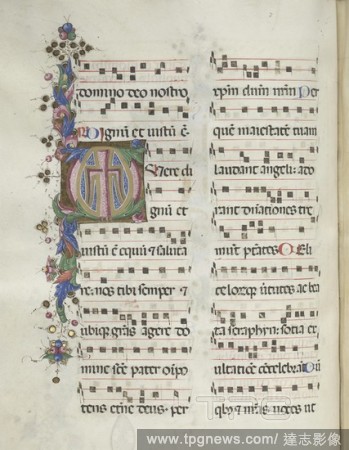 domino deo nostro
Dignū et iustū ē
Vere di
gnū et
iustū ē equū et saluta
re: nos tibi semper et
ubiqz gr̄as agere do
mine sc̄te pater om̄po
tens et̄ne deus. per
xp̄m dn̄m nr̄m Per
quē maiestatē tuam
laudant angeli: ado
rant dn̄ationes tre
mūt ptātes Celi
celorqz ūtutes ac bea
ta seraphyn: sotia ex
ultatiōe cōcelebrāt
qbz et nr̄as uoces ut
TPG
www.tpgnews.com / 達志影像